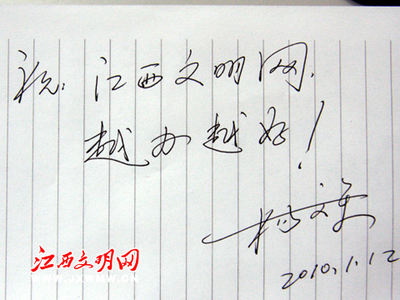 祝：江西文明网，
越办越好！
2010.1.12
江西文明网